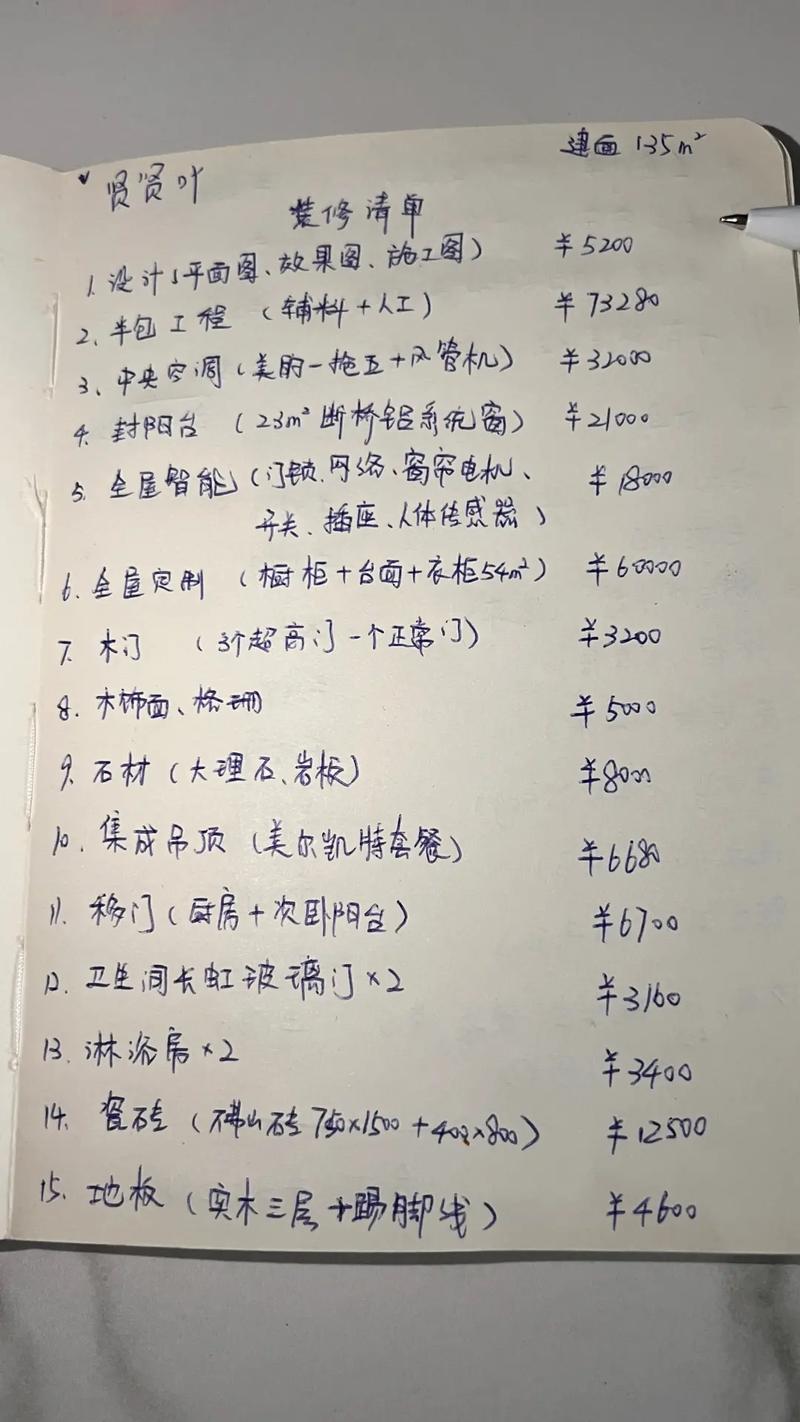 建面 135m²
贤贤叶
装修清单
1. 设计(平面图、效果图、施工图) ¥5200
2. 半包工程 (辅料+人工) ¥73280
3. 中央空调(美的一拖五+风管机) ¥32000
4. 封阳台 (23m²断桥铝系统窗) ¥21000
5. 全屋智能(门锁.网络、窗帘电机、 ¥18000
开关、插座、人体传感器)
6. 全屋定制 (橱柜+台面+衣柜54m²) ¥60000
7. 木门 (3个超高门一个正常门) ¥3200
8. 木饰面、格珊 ¥5000
9. 石材(大理石、岩板) ¥8000
10. 集成吊顶(美尔凯特套餐) ¥6680
11. 移门(厨房+次卧阳台) ¥6700
12. 卫生间长虹玻璃门×2 ¥3160
13. 淋浴房×2 ¥3400
14. 瓷砖(佛山砖750×1500+400×800) ¥12500
15. 地板(实木三层+踢脚线) ¥4600